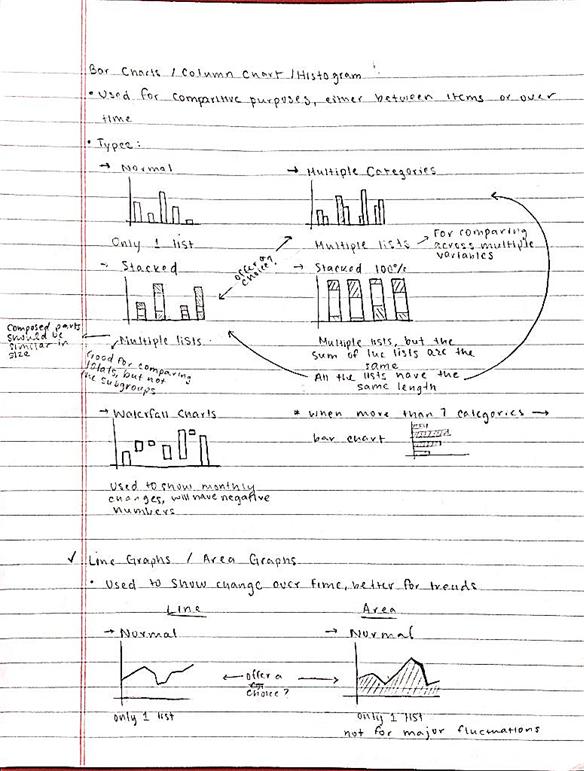 Bar Charts / Column Chart / Histogram
• Used for comparitive purposes, either between items or over
time
• Types:
→ Normal
Only 1 list
→ Multiple Categories
Multiple lists → For comparing
across multiple
variables
offer a
choice?
→ Stacked
Multiple lists
Composed parts
should be
similar in
size
Good for comparing
totals, but not
the subgroups
→ Stacked 100%
Multiple lists, but the
sum of the lists are the
same
All the lists have the
same length
→ Waterfall Charts
Used to show monthly
changes, will have negative
numbers
* When more than 7 categories →
bar chart
✓ Line Graphs / Area Graphs
• Used to show change over time, better for trends
Line
→ Normal
only 1 list
← offer a →
choice?
Area
→ Normal
only 1 list
not for major flucuations